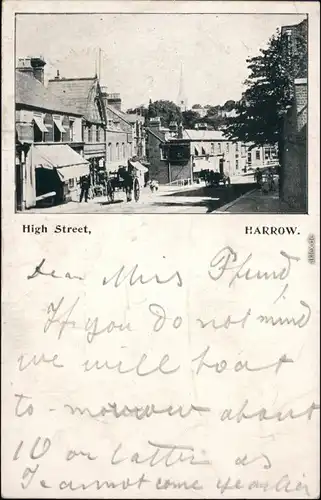 High Street, HARROW.
Dear Miss Pfund
If you do not mind
we will boat
to-morrow about
10 or latter as
I cannot come yearlier